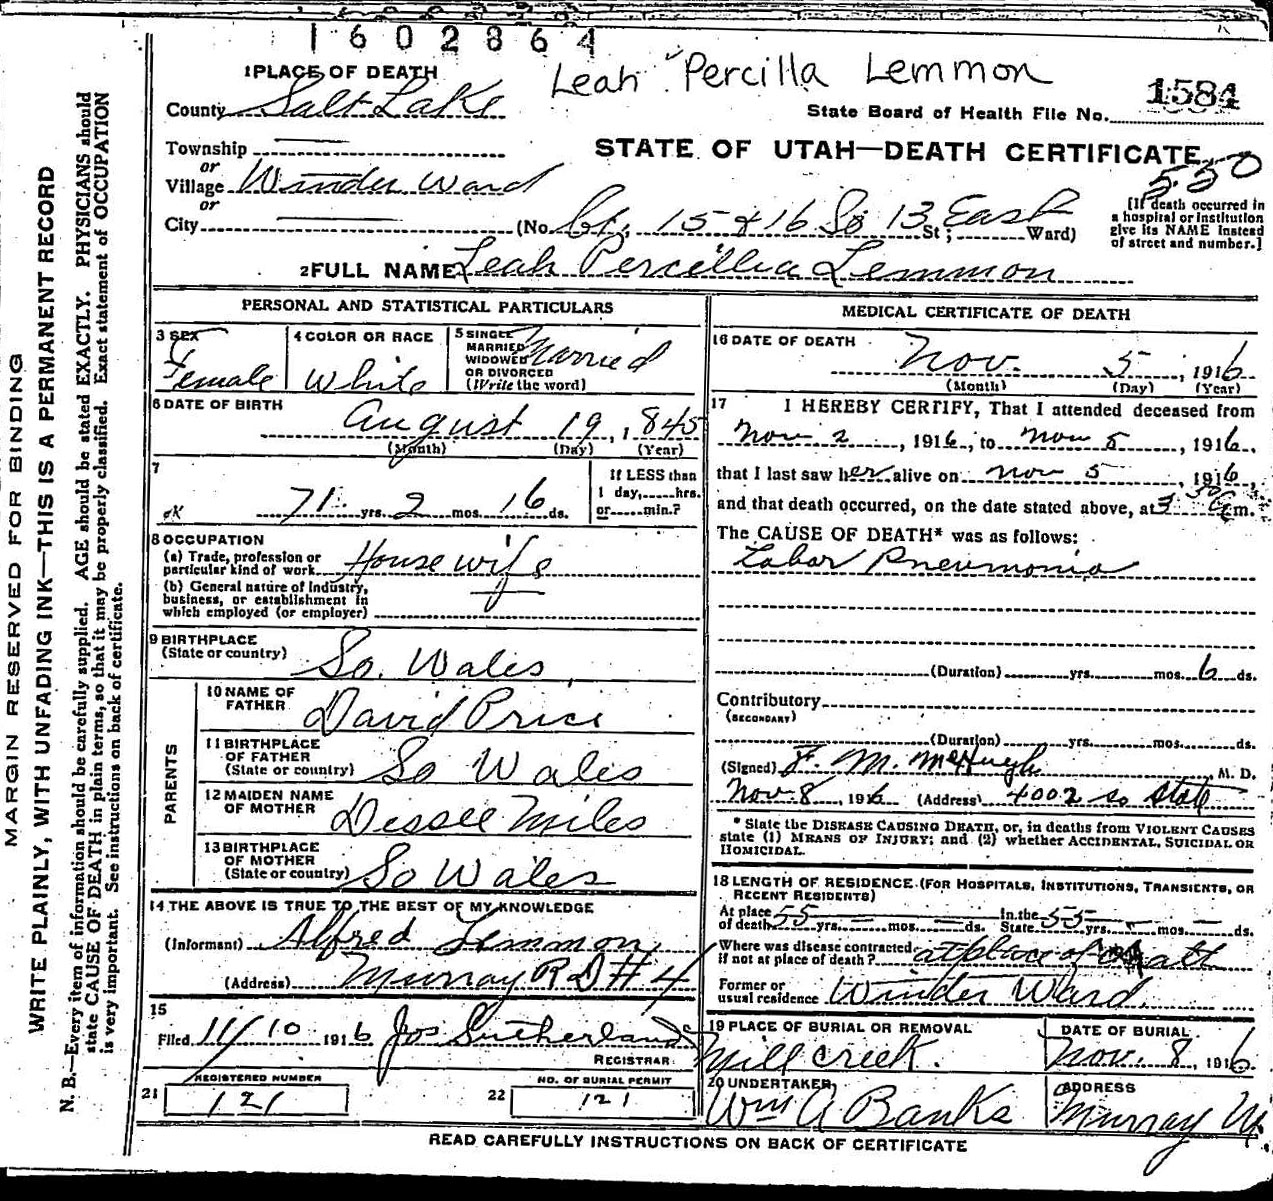 1602864
Leah Percilla Lemmon
1 PLACE OF DEATH
County Salt Lake
State Board of Health File No. 1584
Township
or
Village Winder Ward
or
City
STATE OF UTAH—DEATH CERTIFICATE
550
(No. bt. 15 & 16 So 13 East St; Ward)
[If death occurred in a hospital or institution give its NAME instead of street and number.]
2 FULL NAME Leah Percillia Lemmon
PERSONAL AND STATISTICAL PARTICULARS
3 SEX Female
4 COLOR OR RACE White
5 SINGLE MARRIED WIDOWED OR DIVORCED (Write the word) Married
6 DATE OF BIRTH August 19, 1845
(Month) (Day) (Year)
7
ok 71 yrs. 2 mos. 16 ds.
If LESS than 1 day,......hrs. or......min.?
8 OCCUPATION
(a) Trade, profession or particular kind of work House wife
(b) General nature of Industry, business, or establishment in which employed (or employer)
9 BIRTHPLACE (State or country) So. Wales
PARENTS
10 NAME OF FATHER David Price
11 BIRTHPLACE OF FATHER (State or country) So Wales
12 MAIDEN NAME OF MOTHER Dessee Miles
13 BIRTHPLACE OF MOTHER (State or country) So Wales
14 THE ABOVE IS TRUE TO THE BEST OF MY KNOWLEDGE
(Informant) Alfred Lemmon
(Address) Murray R D # 4
15
Filed 11/10 1916 Jos Sutherland
REGISTRAR
REGISTERED NUMBER
21 121
NO. OF BURIAL PERMIT
22 121
MEDICAL CERTIFICATE OF DEATH
16 DATE OF DEATH Nov. 5, 1916
(Month) (Day) (Year)
17 I HEREBY CERTIFY, That I attended deceased from
Nov 2, 1916, to Nov 5, 1916,
that I last saw her alive on Nov 5, 1916,
and that death occurred, on the date stated above, at 3 30 m.
The CAUSE OF DEATH* was as follows:
Lobar Pneumonia
(Duration) yrs. mos. 6 ds.
Contributory
(SECONDARY)
(Duration) yrs. mos. ds.
(Signed) F. M. McHugh, M. D.
Nov. 8, 1916 (Address) 4002 So State
* State the DISEASE CAUSING DEATH, or, in deaths from VIOLENT CAUSES
state (1) MEANS OF INJURY; and (2) whether ACCIDENTAL, SUICIDAL OR
HOMICIDAL.
18 LENGTH OF RESIDENCE (FOR HOSPITALS, INSTITUTIONS, TRANSIENTS, OR
RECENT RESIDENTS)
At place of death 55 yrs. mos. ds. In the State 55 yrs. mos. ds.
Where was disease contracted if not at place of death? at place of death
Former or usual residence Winder Ward
19 PLACE OF BURIAL OR REMOVAL Mill creek.
DATE OF BURIAL Nov. 8, 1916
20 UNDERTAKER Wm A Banks
ADDRESS Murray U.
READ CAREFULLY INSTRUCTIONS ON BACK OF CERTIFICATE
MARGIN RESERVED FOR BINDING
WRITE PLAINLY, WITH UNFADING INK—THIS IS A PERMANENT RECORD
N. B.—Every item of information should be carefully supplied. AGE should be stated EXACTLY. PHYSICIANS should
state CAUSE OF DEATH in plain terms, so that it may be properly classified. Exact statement of OCCUPATION
is very important. See instructions on back of certificate.